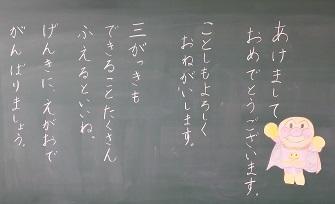 あけまして
おめでとうございます。
ことしもよろしく
おねがいします。
三がっきも
できることたくさん
ふえるといいね。
げんきに、えがおで
がんばりましょう。